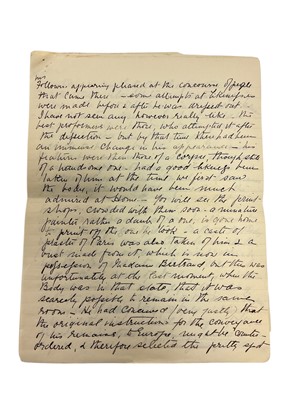 Followers appearing pleased at the concourse of people
that came there - some attempts at likenesses
were made before & after he was dressed out -
I have not seen any, however really like - the
best performers were those, who attempted it after
the dissection - but by that time there had been
an immense change in his appearance - his
features were then those of a corpse, though still
of a handsome one - had a good likeness been
taken of him at the time we first saw
the body, it would have been much
admired at home - You will see the print-
shops, crowded with them soon - a miniature
painter rather a daub of a one, is gone home
to print off the one he took - a cast of
plaster of Paris was also taken of him & a
bust made from it, which is now in
possession of Madame Bertrand but this was
unfortunately at the last moment, when the
Body was in that state, that it was
scarcely possible to remain in the same
room - He had conceived (very justly) that
the original instructions for the conveyance
of his Remains, to Europe, might be counter-
ordered, & therefore selected the pretty spot